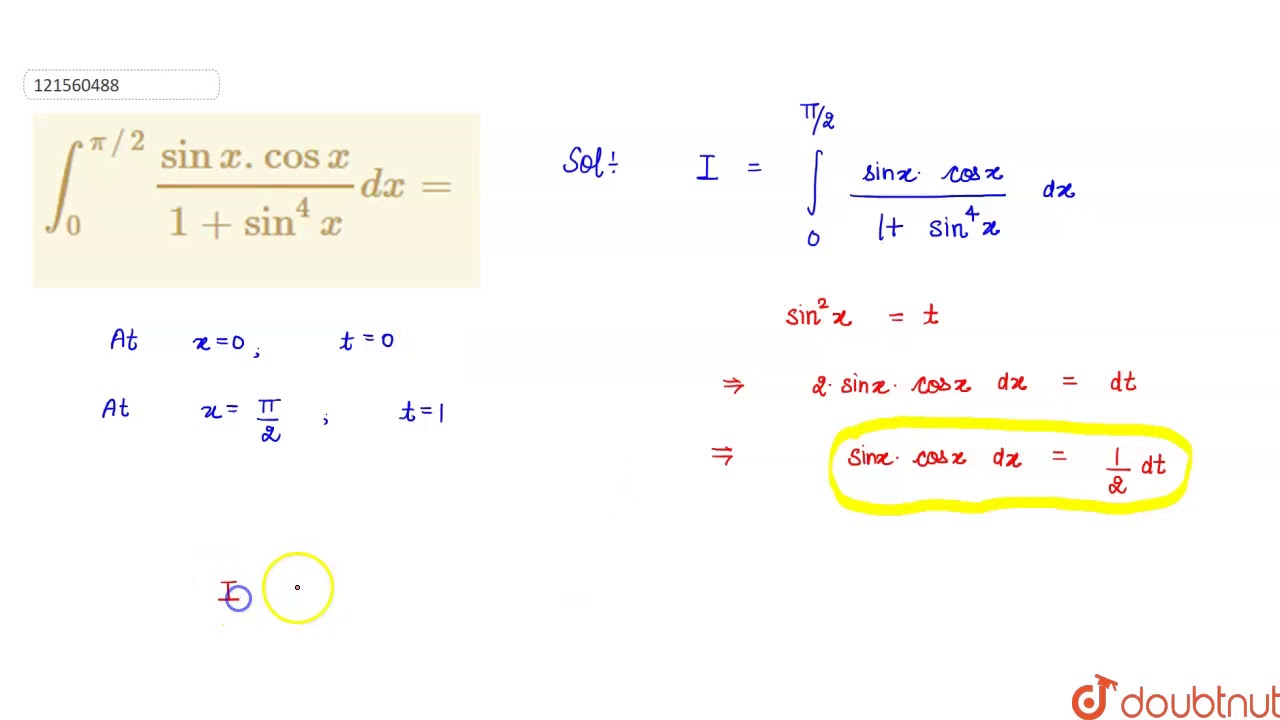 121560488
∫₀^{π/2} sin x. cos x / 1 + sin⁴ x dx =
Sol:- I = ∫₀^{π/2} sinx. cosx / 1+ sin⁴x dx
sin²x = t
⇒ 2. sinx. cosx dx = dt
⇒ sinx. cosx dx = 1/2 dt
At x=0 ; t=0
At x= π/2 ; t=1
I
doubtnut